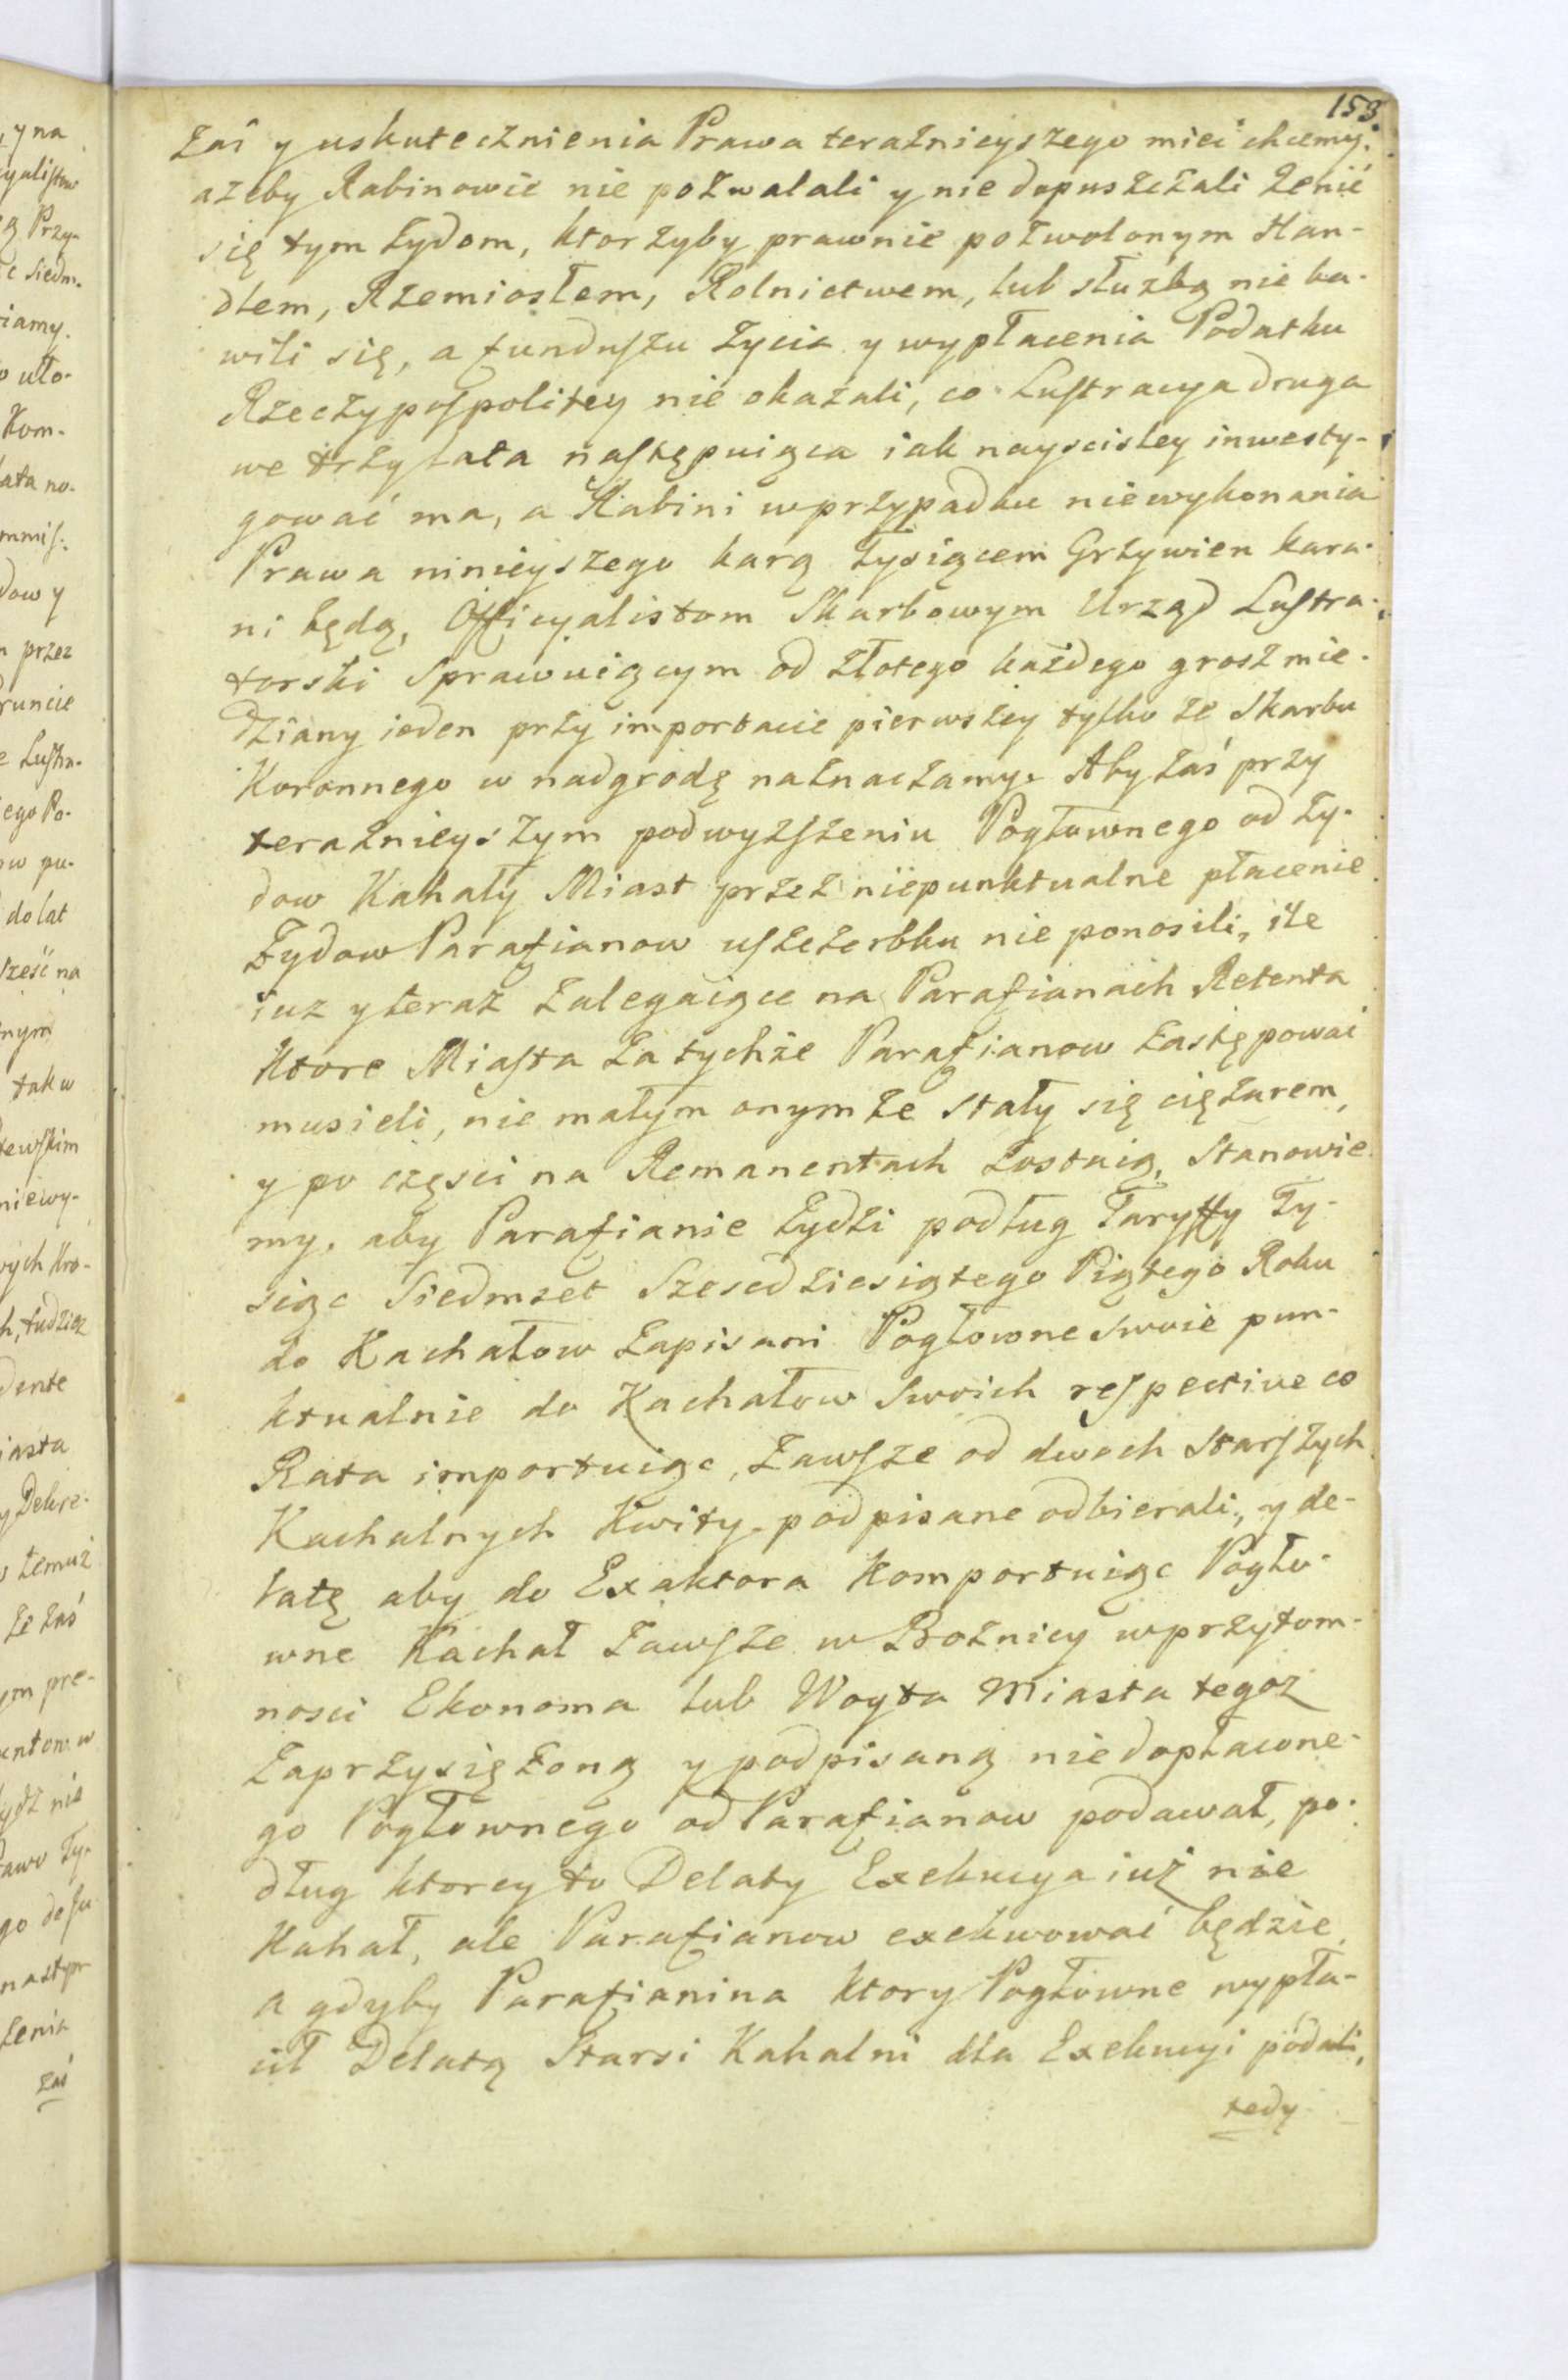 153
zaś y uskutecznienia Prawa teraznieyszego mieć chcemy:
azeby Rabinowie nie pozwalali y nie dopuszczali zenić
się tym Żydom, ktorzyby prawnie pozwolonym Han-
dlem, Rzemiosłem, Rolnictwem, lub służbą nie ba-
wili się, a funduszu życia y wypłacenia Podatku
Rzeczypospolitey nie okazali, co Lustracya druga
we trzy lata następuiąca iak nayscisley inwesty-
gować ma, a Rabini w przypadku niewykonania
Prawa ninieyszego karą tysiącem Grzywien kara-
ni będą, Officyalistom Skarbowym Urząd Lustra-
torski Sprawuiącym od złotego każdego grosz mie-
dziany ieden przy importacie pierwszey tylko ze Skarbu
Koronnego w nadgrodę naznaczamy. Aby zaś przy
teraznieyszym podwyższeniu Pogłownego od Ży-
dow Kahały Miast przez niepunktualne płacenie
Żydow Parafianow uszczerbku nie ponosili, ile
iuz y teraz zalegaiące na Parafianach Retenta
Ktore Miasta za tychże Parafianow zastępować
musieli, nie małym onymże stały się ciężarem,
y po części na Remanentach zostaią, Stanowie-
my, aby Parafianie Żydzi podług Taryffy Ty-
siąc Siedmset Szescdziesiątego Piątego Roku
do Kachałow zapisani Pogłowne swoie pun-
ktualnie do Kachałow swoich respective co
Rata importuiąc, zawsze od dwoch Starszych
Kachalnych Kwity podpisane odbierali, y de-
latę aby do Exaktora komportuiąc Pogło-
wne Kachał zawsze w Boznicy w przytom-
nosci Ekonoma lub Woyta Miasta tegoz
zaprzysiężoną y podpisaną niedopłacone-
go Pogłownego od Parafianow podawał, po-
dług ktorey to Delaty Exekucya iuż nie
Kahał, ale Parafianow exekwować będzie,
a gdyby Parafianina ktory Pogłowne wypła-
cił Delatą Starsi Kahalni dla Exekucyi podali,
tedy